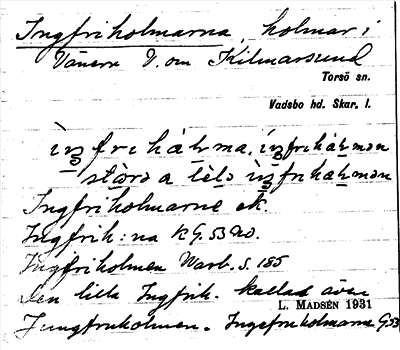 Ingfriholmarna, holmar i
Vänern V. om Kilmarsund
Torsö sn.
Vadsbo hd. Skar. l.
ìŋfriháḷma, ìŋfriháḷmən
stōrə a lìlə ìŋfriháḷmən
Ingfriholmarne ek.
Ingfrih:na KG. 53 NO.
Ingfriholmen Warb. S. 185
Den lilla Ingfrih. kallas även
L. MADSÉN 1931
Jungfruholmen. Ingefruholmarne G.53